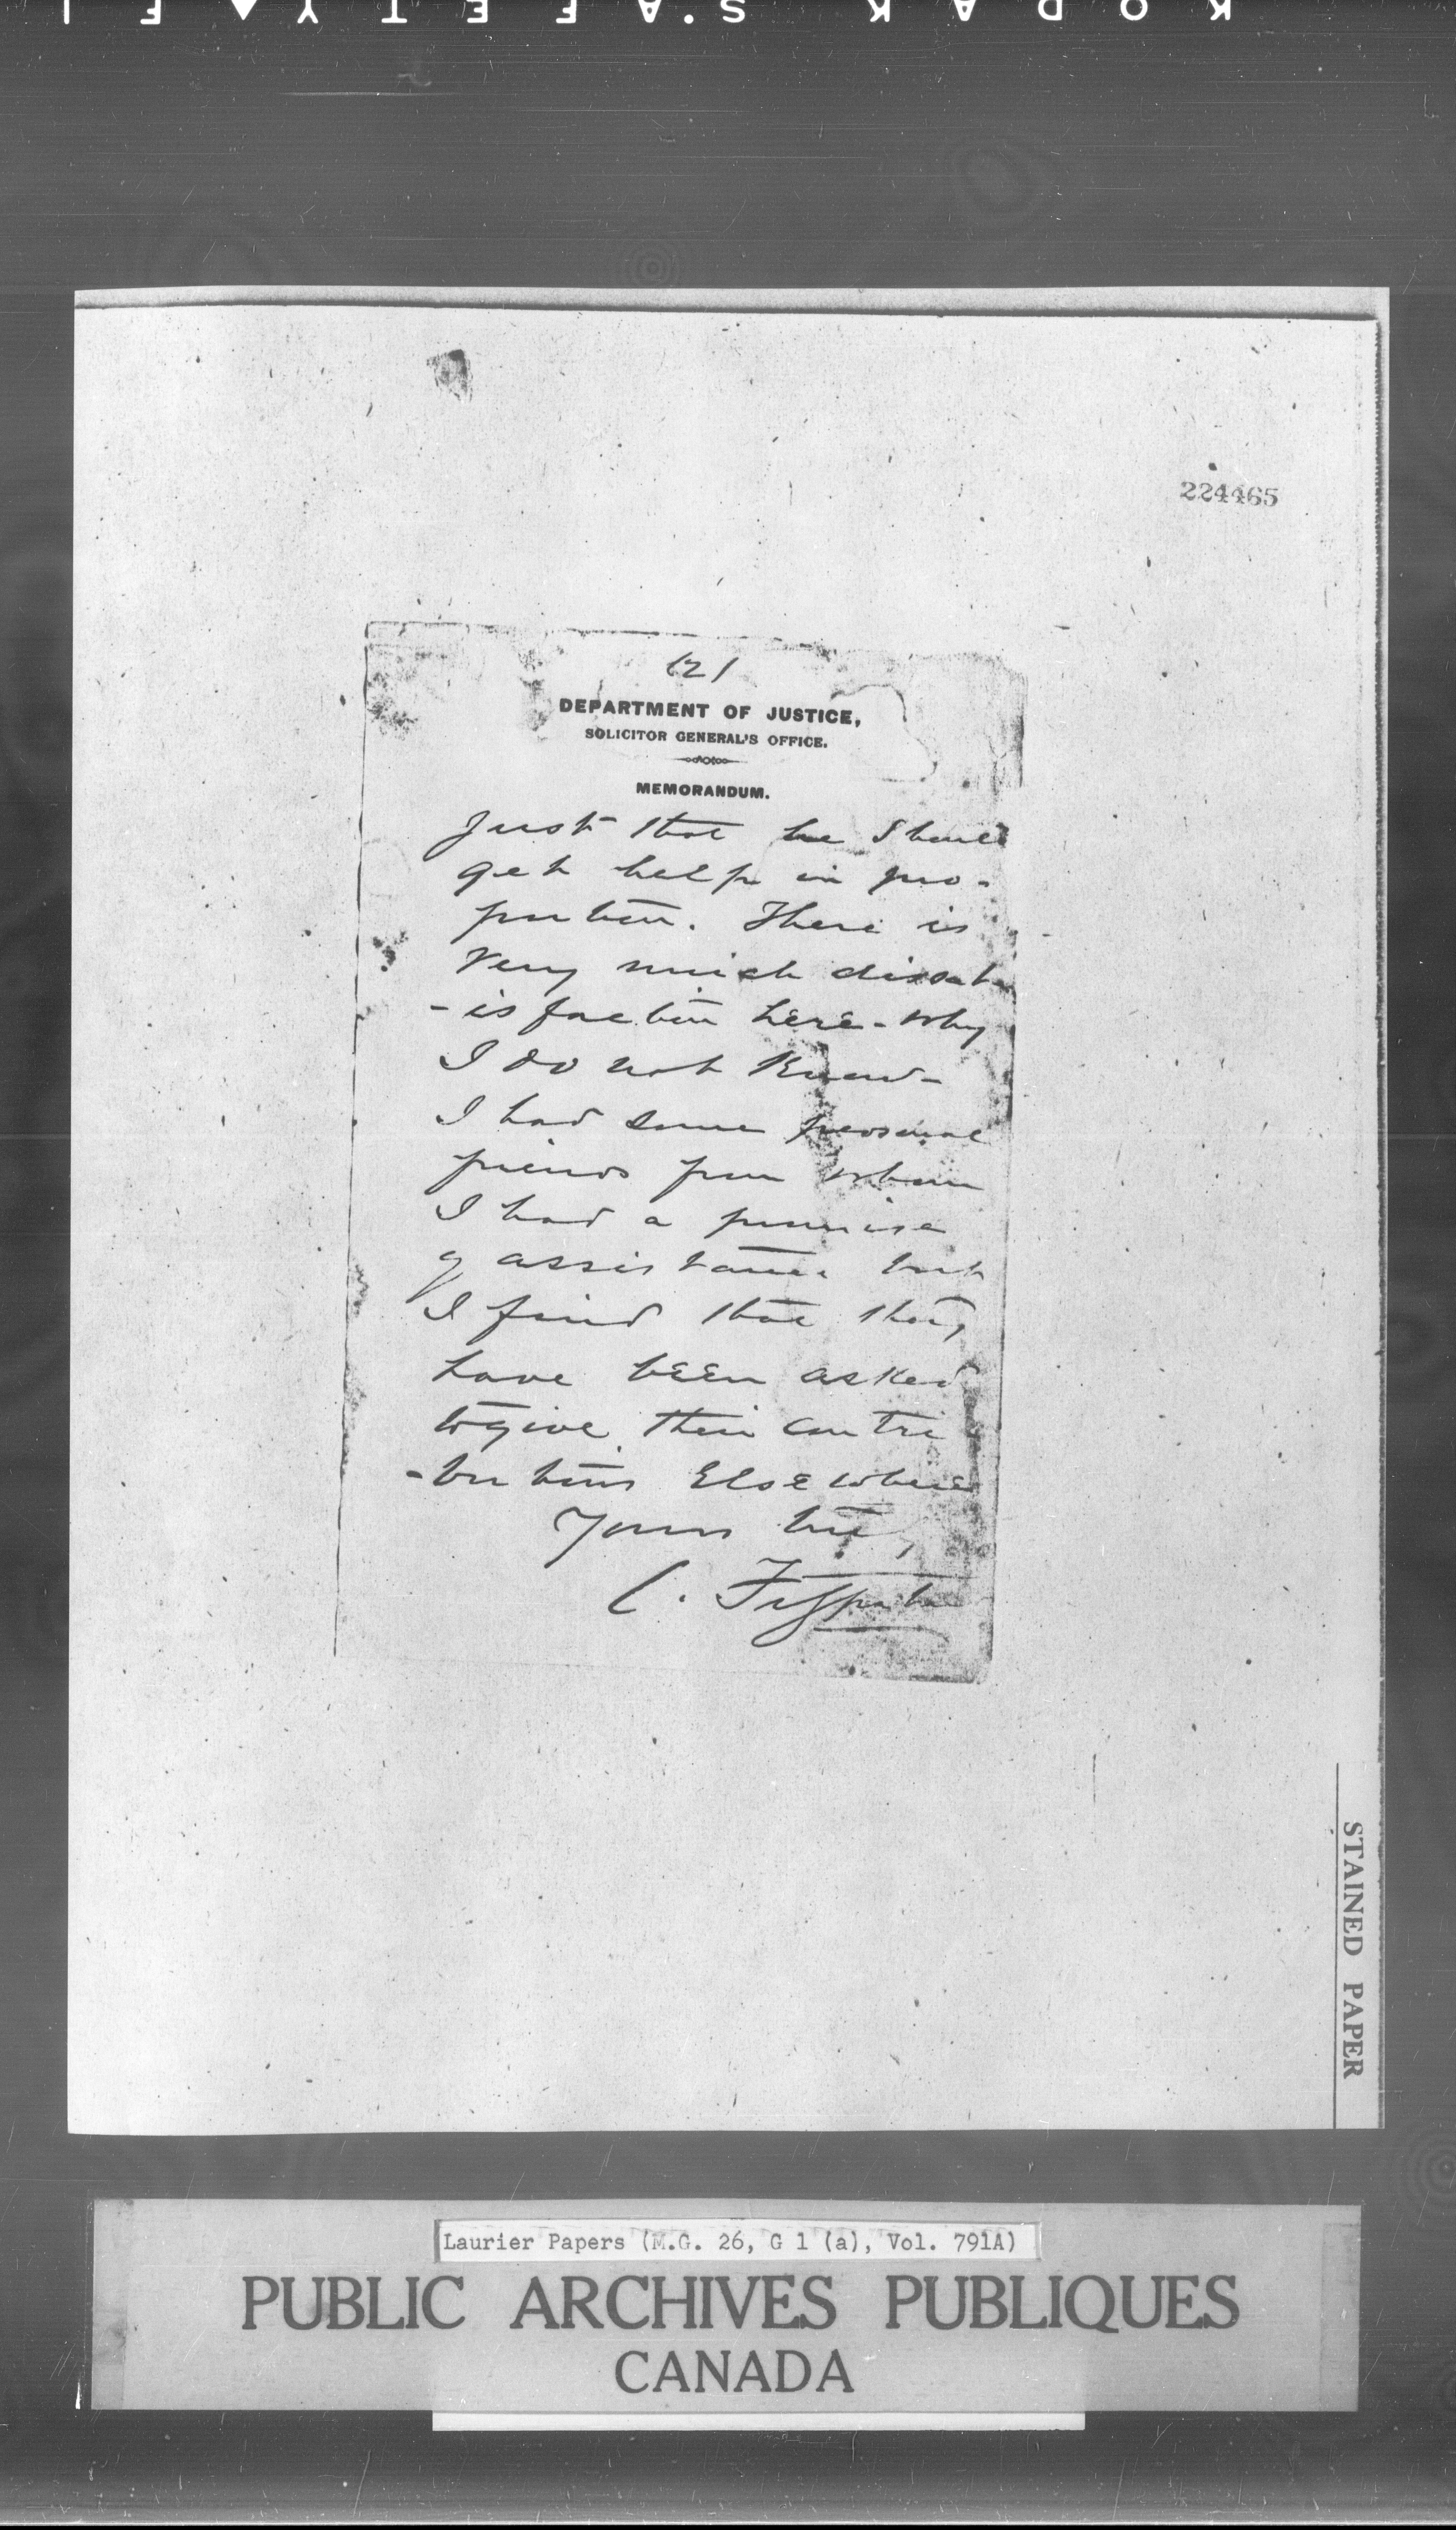 KODAK S.AFETY ▲ FI
224465
(2)
DEPARTMENT OF JUSTICE,
SOLICITOR GENERAL'S OFFICE.
MEMORANDUM.
Just that he should
get help in pro-
portion. There is
very much dissat-
-isfaction here - Why
I do not know -
I had some personal
friends from whom
I had a promise
of assistance but
I find that they
have been asked
to give their contri
-butions Elsewhere
Yours truly,
C. Fitzpatrick
STAINED PAPER
Laurier Papers (M.G. 26, G 1 (a), Vol. 791A)
PUBLIC ARCHIVES PUBLIQUES
CANADA